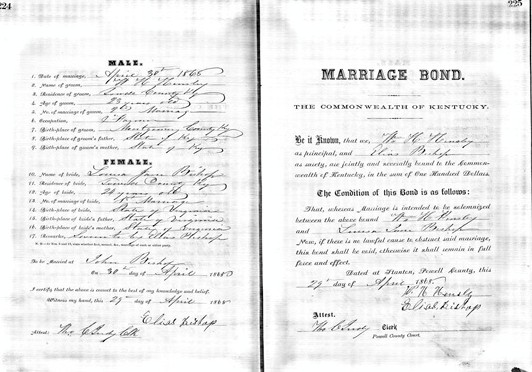 224
MALE.
1. Date of marriage, April 30th 1868
2. Name of groom, W. H. Hensly
3. Residence of groom, County Ky
4. Age of groom, 23 years old
5. No. of marriage of groom, Marriage
6. Occupation,
7. Birth-place of groom, Montgomery County Ky
8. Birth-place of groom's father, State of Ky
9. Birth-place of groom's mother, State of Ky
FEMALE.
10. Name of bride, Jane Bishop
11. Residence of bride, County Ky
12. Age of bride, years old
13. No. of marriage of bride, 1st Marriage
14. Birth-place of bride, State Virginia
15. Birth-place of bride's father, State of Virginia
16. Birth-place of bride's mother, State of Virginia
17. Remarks, Bishop
To be Married at John Bishop
On 30th day of April 1868
I certify that the above is correct to the best of my knowledge and belief.
Witness my hand, this 29th day of April 1868
Elias Bishop
Attest: Clk
225
MARRIAGE BOND.
THE COMMONWEALTH OF KENTUCKY.
Be it Known, that we, Wm H Hensly
as principal, and Elias Bishop
as surety, are jointly and severally bound to the Common-
wealth of Kentucky, in the sum of One Hundred Dollars.
The Condition of this Bond is as follows:
That, whereas Marriage is intended to be solemnized
between the above bound Wm H Hensly
and Jane Bishop
Now, if there is no lawful cause to obstruct said marriage,
this bond shall be void, otherwise it shall remain in full
force and effect.
Dated at Stanton, Powell County, this
29th day of April 1868.
W. H. Hensly
Elias Bishop
Attest,
Clerk
Powell County Court.